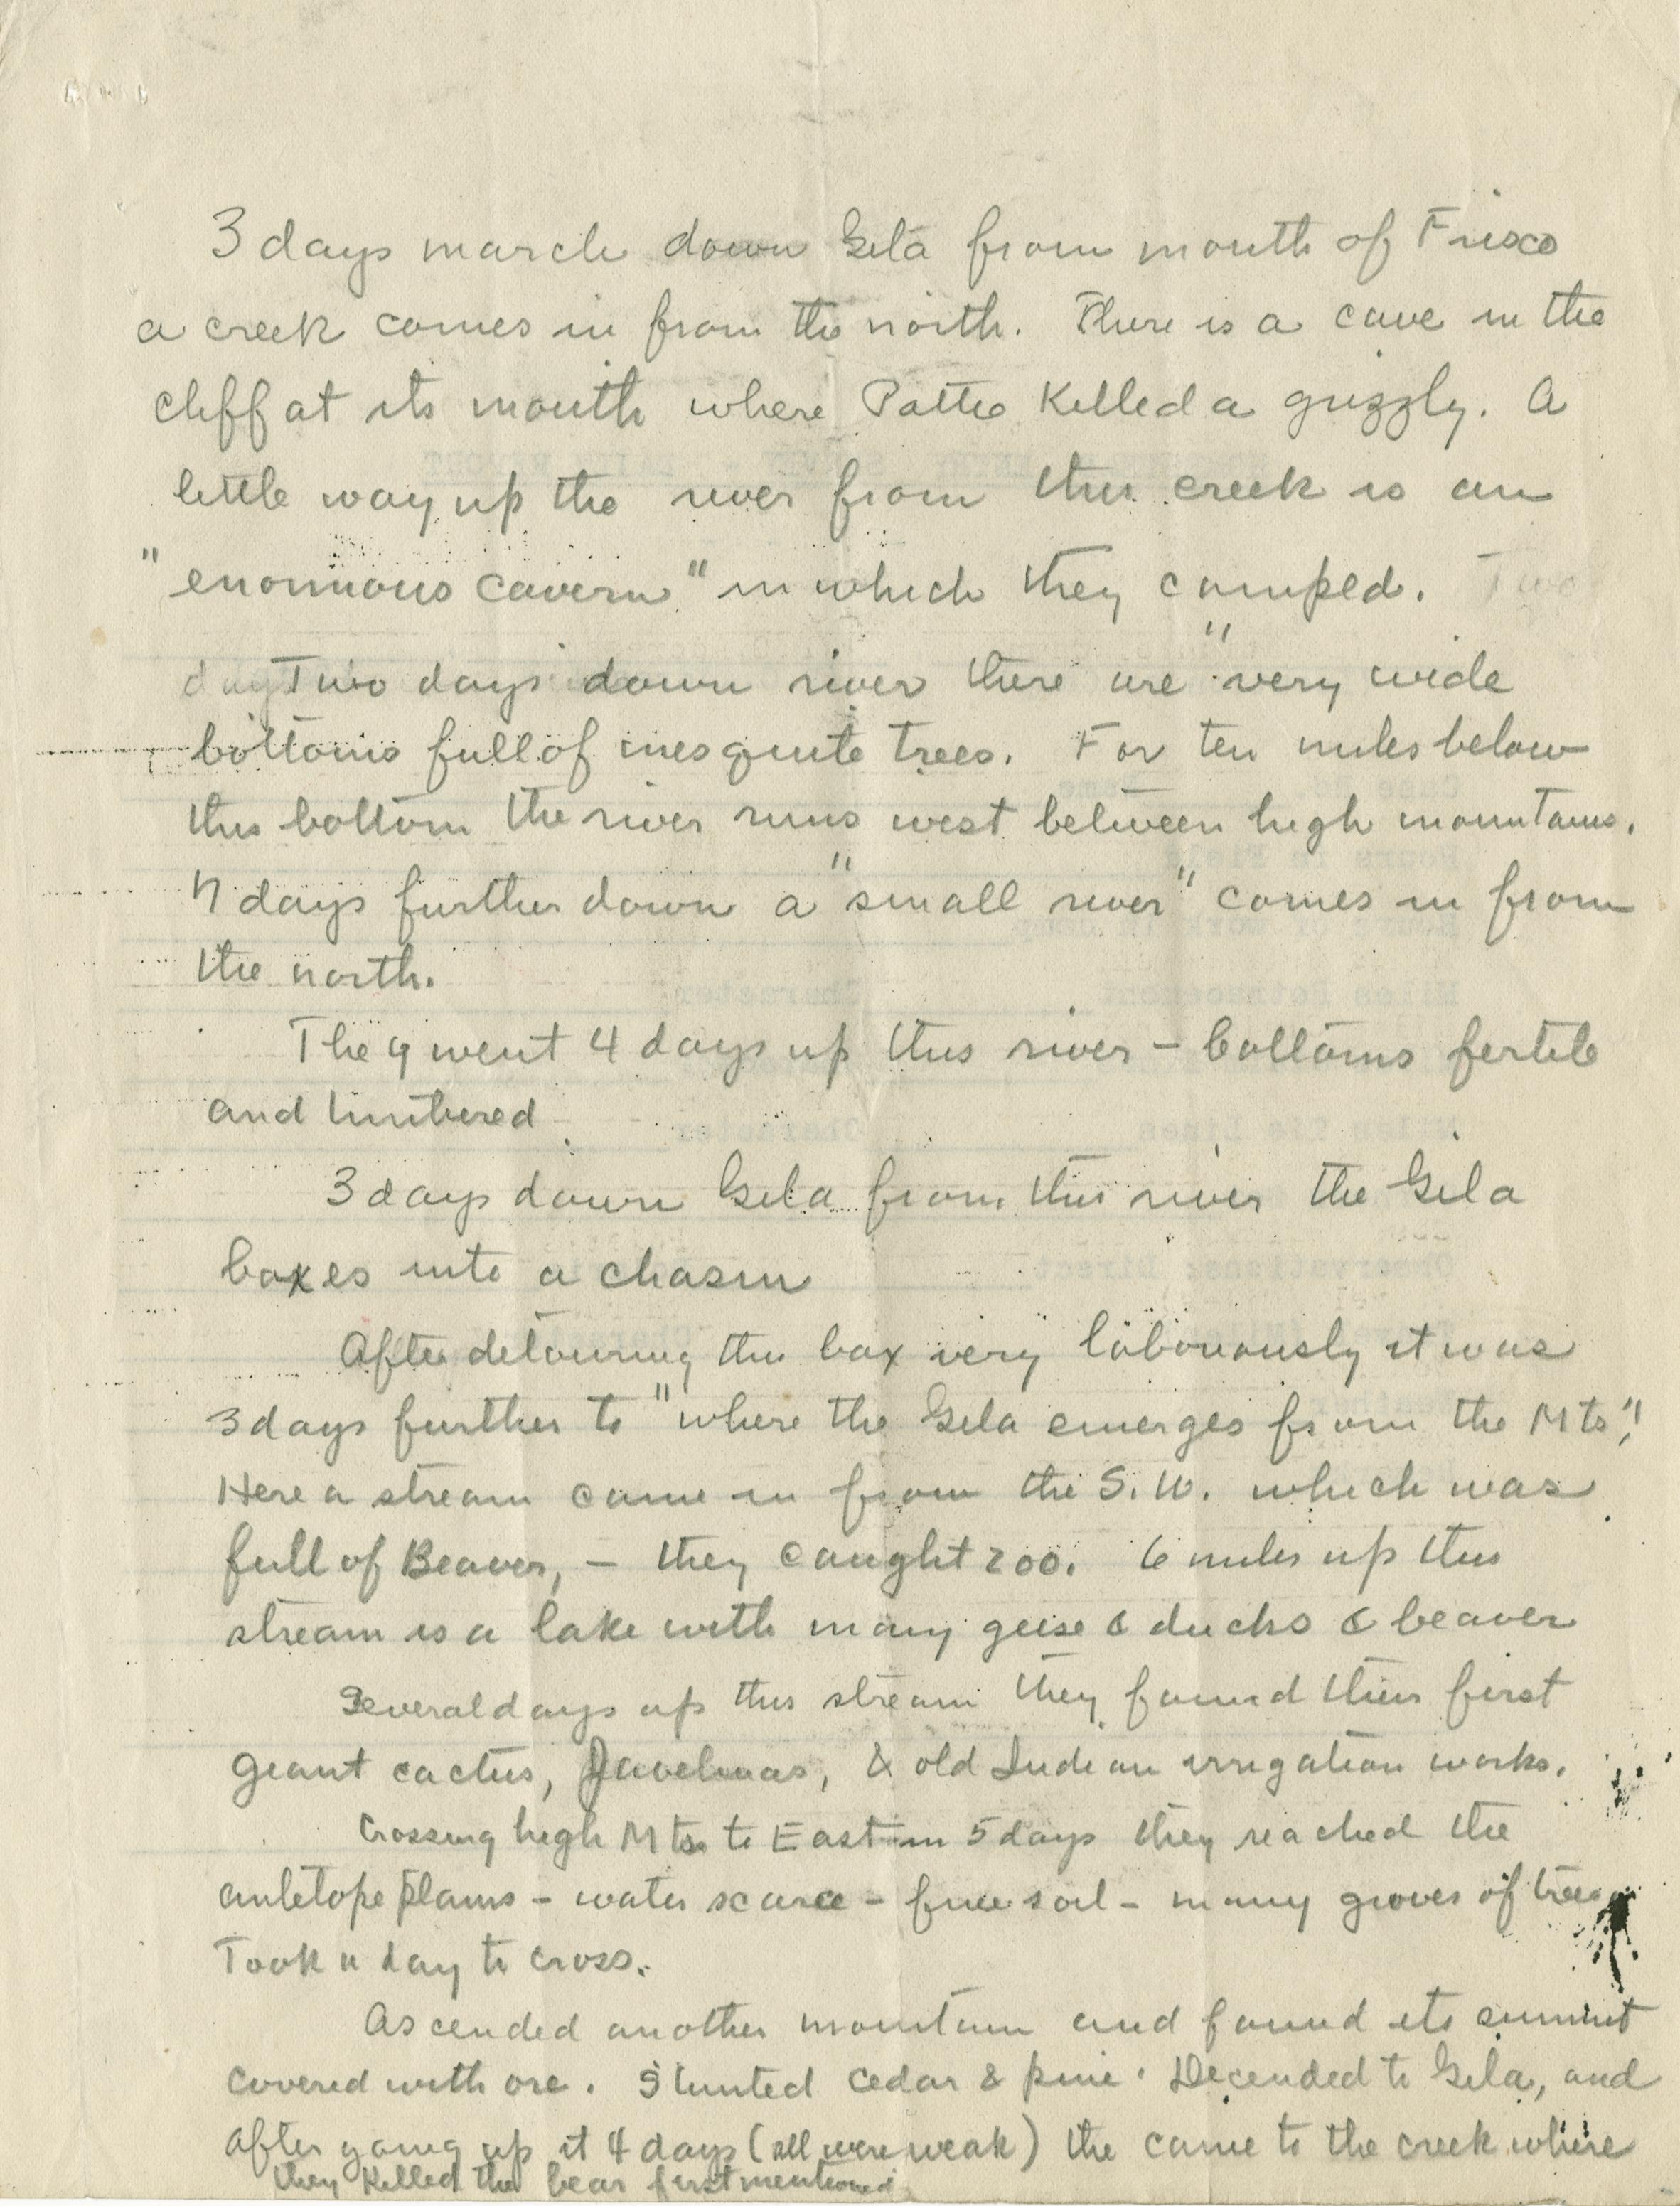 3 days march down Gila from mouth of Frisco
a creek comes in from the north. There is a cave in the
cliff at its mouth where Pattie killed a grizzly. A
little way up the river from this creek is an
"enormous cavern" in which they camped. Two
day Two days down river there are "very wide
bottoms full of mesquite trees. For ten miles below
this bottom the river runs west between high mountains.
7 days further down a "small river" comes in from
the north.
They went 4 days up this river - bottoms fertile
and timbered
3 days down Gila from this river the Gila
boxes into a chasm
After detouring this box very laboriously it was
3 days further to "where the Gila emerges from the Mts".
Here a stream came in from the S.W. which was
full of Beaver, - they caught 200. 6 miles up this
stream is a lake with many geese & ducks & beaver
Several days up this stream they found their first
giant cactus, Javelinas, & old Indian irrigation works.
Crossing high Mts to East in 5 days they reached the
antelope plains - water scarce - fine soil - many groves of trees
Took a day to cross.
Ascended another mountain and found its summit
covered with ore. Stunted cedar & pine. Decended to Gila, and
after going up it 4 days (all were weak) the came to the creek where
they killed the bear first mentioned